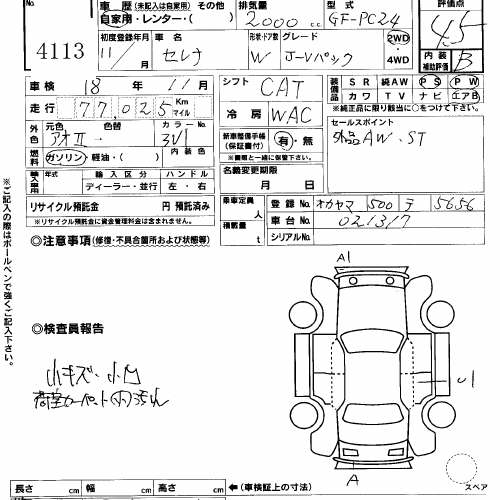 車歴 (未記入は自家用) その他
自家用・レンター・( )
排気量 2000 cc
型式 GF-PC24
評価点 4.5
4113
初度登録年月 11/ 月
車名 セレナ
形状・ドア数 W
グレード J-Vパック
2WD・4WD
内装補助評価 B
車検 18年 11月
シフト CAT
装備品 SR 純AW PS PW
カワ TV ナビ エアB
※純正品に限り該当に○をつけて下さい。
走行 77,025 Km マイル
冷房 WAC
セールスポイント
社外品AW・ST
外色 元色 アオII→ 色替
カラー No. 3V1
燃料 ガソリン・軽油・( ) 内装色
新車整備手帳(保証書付) 有・無
※書類と一緒に保管下さい。
名義変更期限
月 日
輸入車用 年式 輸入区分 ハンドル
ディーラー・並行 左・右
リサイクル預託金 円 預託済み
※リサイクル預託金に資金管理料金は含まれておりません。
乗車定員 人
積載量 t
登録No. オカヤマ 500 テ 5656
車台No. 021317
シリアルNo.
◎注意事項 (修復・不具合箇所および状態等)
※ご記入の際はボールペンで強くご記入下さい。
A1
◎検査員報告
小キズ・小凹
荷室カーペット(内)汚れ
U1
A
スペア
長さ cm 幅 cm 高さ cm ←(車検証上の寸法)